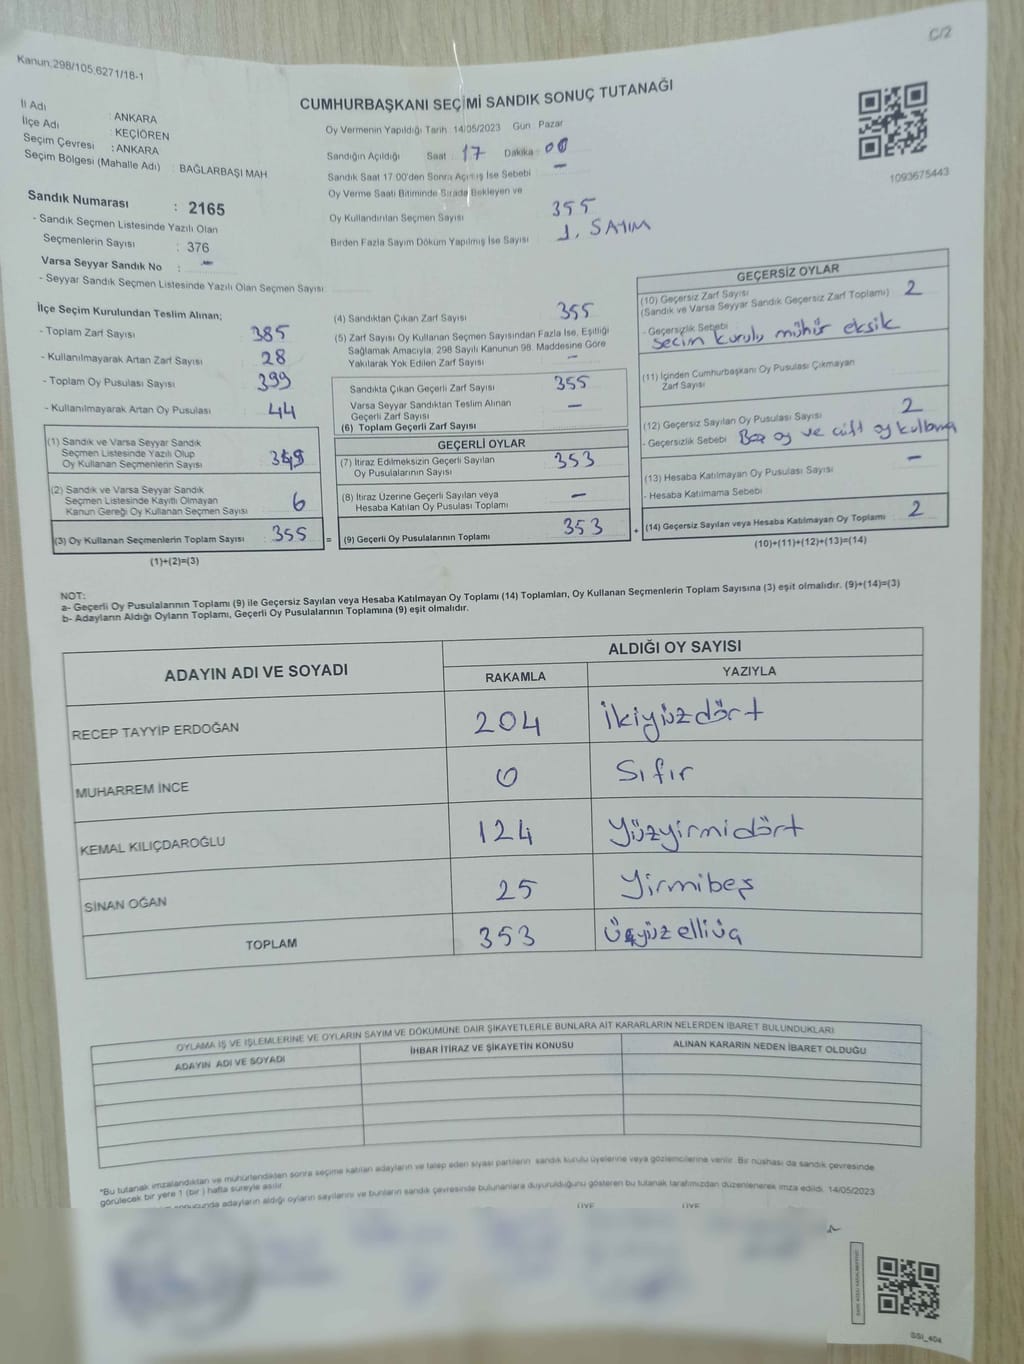 C/2
Kanun:298/105;6271/18-1
CUMHURBAŞKANI SEÇİMİ SANDIK SONUÇ TUTANAĞI
İl Adı : ANKARA
İlçe Adı : KEÇİÖREN
Seçim Çevresi : ANKARA
Seçim Bölgesi (Mahalle Adı) : BAĞLARBAŞI MAH
Sandık Numarası : 2165
- Sandık Seçmen Listesinde Yazılı Olan
Seçmenlerin Sayısı : 376
Varsa Seyyar Sandık No : -
- Seyyar Sandık Seçmen Listesinde Yazılı Olan Seçmen Sayısı:
Oy Vermenin Yapıldığı Tarih 14/05/2023 Gün : Pazar
Sandığın Açıldığı Saat : 17 Dakika : 00
Sandık Saat 17:00'den Sonra Açılmış İse Sebebi -
Oy Verme Saati Bitiminde Sırada Bekleyen ve
Oy Kullandırılan Seçmen Sayısı 355
Birden Fazla Sayım Döküm Yapılmış İse Sayısı 1. SAYIM
1093675443
İlçe Seçim Kurulundan Teslim Alınan;
- Toplam Zarf Sayısı 385
- Kullanılmayarak Artan Zarf Sayısı 28
- Toplam Oy Pusulası Sayısı 399
- Kullanılmayarak Artan Oy Pusulası 44
(1) Sandık ve Varsa Seyyar Sandık
Seçmen Listesinde Yazılı Olup
Oy Kullanan Seçmenlerin Sayısı 349
(2) Sandık ve Varsa Seyyar Sandık
Seçmen Listesinde Kayıtlı Olmayan
Kanun Gereği Oy Kullanan Seçmen Sayısı 6
(3) Oy Kullanan Seçmenlerin Toplam Sayısı 355 =
(1)+(2)=(3)
(4) Sandıktan Çıkan Zarf Sayısı 355
(5) Zarf Sayısı Oy Kullanan Seçmen Sayısından Fazla İse, Eşitliği
Sağlamak Amacıyla, 298 Sayılı Kanunun 98. Maddesine Göre
Yakılarak Yok Edilen Zarf Sayısı -
Sandıkta Çıkan Geçerli Zarf Sayısı 355
Varsa Seyyar Sandıktan Teslim Alınan
Geçerli Zarf Sayısı -
(6) Toplam Geçerli Zarf Sayısı
GEÇERLİ OYLAR
(7) İtiraz Edilmeksizin Geçerli Sayılan
Oy Pusulalarının Sayısı 353
(8) İtiraz Üzerine Geçerli Sayılan veya
Hesaba Katılan Oy Pusulası Toplamı -
(9) Geçerli Oy Pusulalarının Toplamı 353 +
GEÇERSİZ OYLAR
(10) Geçersiz Zarf Sayısı
(Sandık ve Varsa Seyyar Sandık Geçersiz Zarf Toplamı) 2
- Geçersizlik Sebebi
Secim kurulu mühür eksik
(11) İçinden Cumhurbaşkanı Oy Pusulası Çıkmayan
Zarf Sayısı
(12) Geçersiz Sayılan Oy Pusulası Sayısı 2
- Geçersizlik Sebebi Boş oy ve çift oy kullanma
(13) Hesaba Katılmayan Oy Pusulası Sayısı -
- Hesaba Katılmama Sebebi
(14) Geçersiz Sayılan veya Hesaba Katılmayan Oy Toplamı 2
(10)+(11)+(12)+(13)=(14)
NOT:
a- Geçerli Oy Pusulalarının Toplamı (9) ile Geçersiz Sayılan veya Hesaba Katılmayan Oy Toplamı (14) Toplamları, Oy Kullanan Seçmenlerin Toplam Sayısına (3) eşit olmalıdır. (9)+(14)=(3)
b- Adayların Aldığı Oyların Toplamı, Geçerli Oy Pusulalarının Toplamına (9) eşit olmalıdır.
ADAYIN ADI VE SOYADI ALDIĞI OY SAYISI
RAKAMLA YAZIYLA
RECEP TAYYİP ERDOĞAN 204 İkiyüzdört
MUHARREM İNCE 0 Sıfır
KEMAL KILIÇDAROĞLU 124 Yüzyirmidört
SİNAN OĞAN 25 Yirmibeş
TOPLAM 353 Üçyüzelliüç
OYLAMA İŞ VE İŞLEMLERİNE VE OYLARIN SAYIM VE DÖKÜMÜNE DAİR ŞİKAYETLERLE BUNLARA AİT KARARLARIN NELERDEN İBARET BULUNDUKLARI
ADAYIN ADI VE SOYADI İHBAR İTİRAZ VE ŞİKAYETİN KONUSU ALINAN KARARIN NEDEN İBARET OLDUĞU
"Bu tutanak imzalandıktan ve mühürlendikten sonra seçime katılan adayların ve talep eden siyasi partilerin sandık kurulu üyelerine veya gözlemcilerine verilir. Bir nüshası da sandık çevresinde
görülecek bir yere 1 (bir) hafta süreyle asılır.
sonucunda adayların aldığı oyların sayılarını ve bunların sandık çevresinde bulunanlara duyurulduğunu gösteren bu tutanak tarafımızdan düzenlenerek imza edildi. 14/05/2023
ÜYE ÜYE
SSI_404